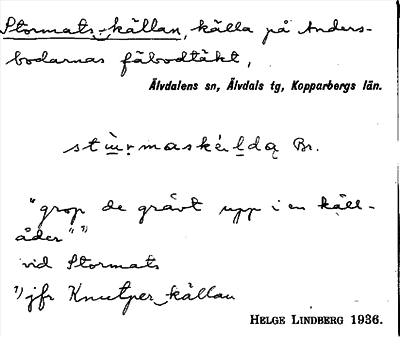 Stormats-källan, källa på Anders-
bodarnas fäbodtäkt,
Älvdalens sn, Älvdals tg, Kopparbergs län.
Br.
"grop de grävt upp i en käll-
åder" ¹)
vid Stormats
¹) jfr Knutper-källan
HELGE LINDBERG 1936.